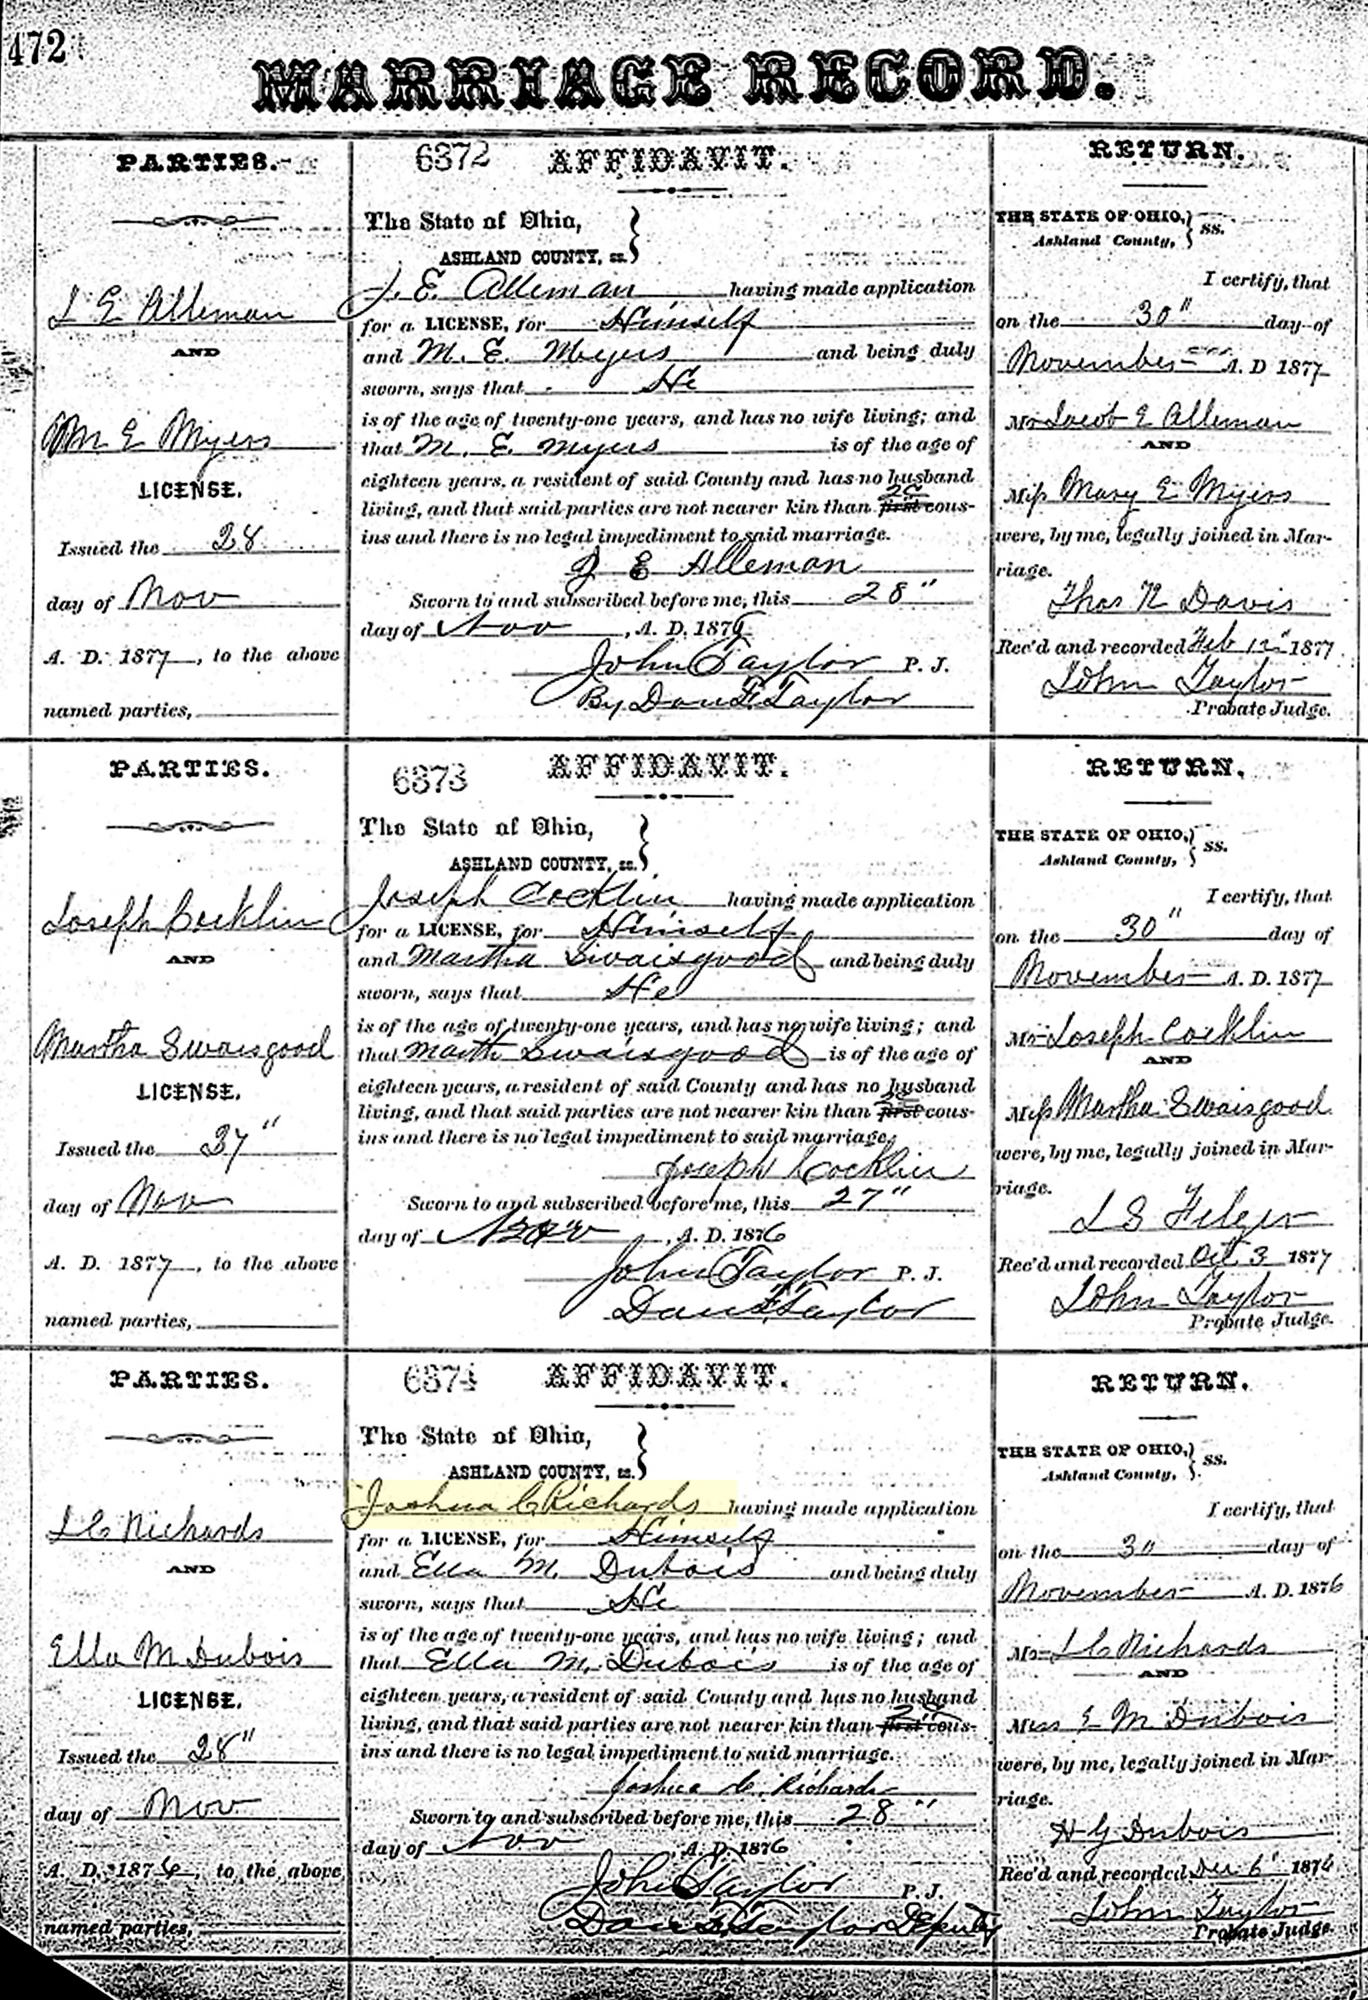 472
MARRIAGE RECORD.
PARTIES.
J E Alleman
AND
M E Myers
LICENSE.
Issued the 28
day of Nov
A. D. 1877, to the above
named parties,
6372 AFFIDAVIT.
The State of Ohio,
ASHLAND COUNTY, ss.
J. E. Alleman having made application
for a LICENSE, for Himself
and M. E. Myers and being duly
sworn, says that He
is of the age of twenty-one years, and has no wife living; and
that M. E. Myers is of the age of
eighteen years, a resident of said County and has no husband
living, and that said parties are not nearer kin than first cous-
ins and there is no legal impediment to said marriage.
J E Alleman
Sworn to and subscribed before me, this 28"
day of Nov, A. D. 1876
John Taylor P. J.
By Dan F. Taylor
RETURN.
THE STATE OF OHIO,
Ashland County, ss.
I certify, that
on the 30" day of
November A. D 1877
Mr Jacob E Alleman
AND
Miss Mary E Myers
were, by me, legally joined in Mar-
riage.
Thos N Davis
Rec'd and recorded Feb 12" 1877
John Taylor
Probate Judge.
PARTIES.
Joseph Cocklin
AND
Martha Swaisgood
LICENSE.
Issued the 27"
day of Nov
A. D. 1877, to the above
named parties,
6373 AFFIDAVIT.
The State of Ohio,
ASHLAND COUNTY, ss.
Joseph Cocklin having made application
for a LICENSE, for Himself
and Martha Swaisgood and being duly
sworn, says that He
is of the age of twenty-one years, and has no wife living; and
that Marth Swaisgood is of the age of
eighteen years, a resident of said County and has no husband
living, and that said parties are not nearer kin than first cous-
ins and there is no legal impediment to said marriage.
Joseph Cocklin
Sworn to and subscribed before me, this 27"
day of Nov, A. D. 1876
John Taylor P. J.
Dan F. Taylor
RETURN.
THE STATE OF OHIO,
Ashland County, ss.
I certify, that
on the 30" day of
November A. D. 1877
Mr Joseph Cocklin
AND
Miss Martha Swaisgood
were, by me, legally joined in Mar-
riage.
Rec'd and recorded 3 1877
John Taylor
Probate Judge.
PARTIES.
J C Richards
AND
Ella M Dubois
LICENSE.
Issued the 28"
day of Nov
A. D. 1876, to the above
named parties,
6374 AFFIDAVIT.
The State of Ohio,
ASHLAND COUNTY, ss.
Joshua C Richards having made application
for a LICENSE, for Himself
and Ella M. Dubois and being duly
sworn, says that He
is of the age of twenty-one years, and has no wife living; and
that Ella M. Dubois is of the age of
eighteen years, a resident of said County and has no husband
living, and that said parties are not nearer kin than first cous-
ins and there is no legal impediment to said marriage.
Joshua C. Richards
Sworn to and subscribed before me, this 28"
day of Nov, A. D. 1876
John Taylor P. J.
Dan F. Taylor Deputy
RETURN.
THE STATE OF OHIO,
Ashland County, ss.
I certify, that
on the 30 day of
November A. D. 1876
Mr J C Richards
AND
Miss E M Dubois
were, by me, legally joined in Mar-
riage.
H G Dubois
Rec'd and recorded Dec 6" 1876
John Taylor
Probate Judge.